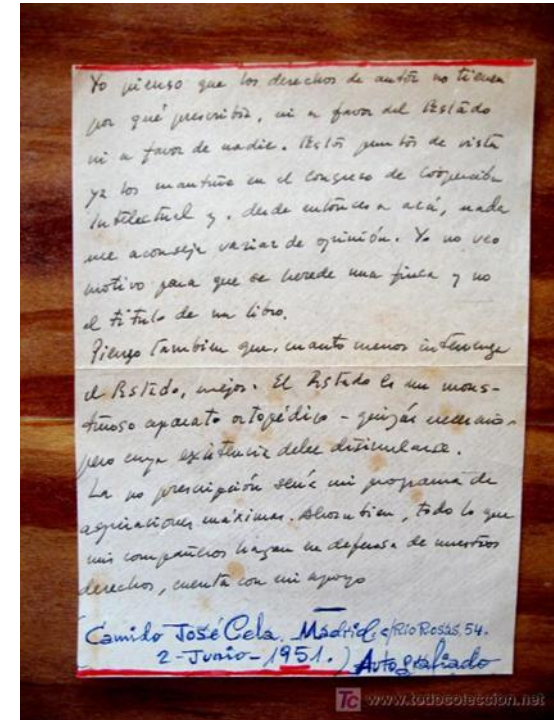 Yo pienso que los derechos de autor no tienen
por qué prescribir, ni a favor del Estado
ni a favor de nadie. Estos puntos de vista
ya los mantuve en el Congreso de Cooperación
Intelectual y, desde entonces a acá, nada
me aconseja variar de opinión. Yo no veo
motivo para que se herede una finca y no
el título de un libro.
Pienso también que, cuanto menos intervenga
el Estado, mejor. El Estado es un mons-
truoso aparato ortopédico - quizás necesario -
pero cuya existencia debe disimularse.
La no prescripción sería mi programa de
aspiraciones máximas. Ahora bien, todo lo que
mis compañeros hagan en defensa de nuestros
derechos, cuenta con mi apoyo
(Camilo José Cela. Madrid, c/Rio Rosas, 54.
2-Junio-1951.) Autografiado
Tc www.todocoleccion.net